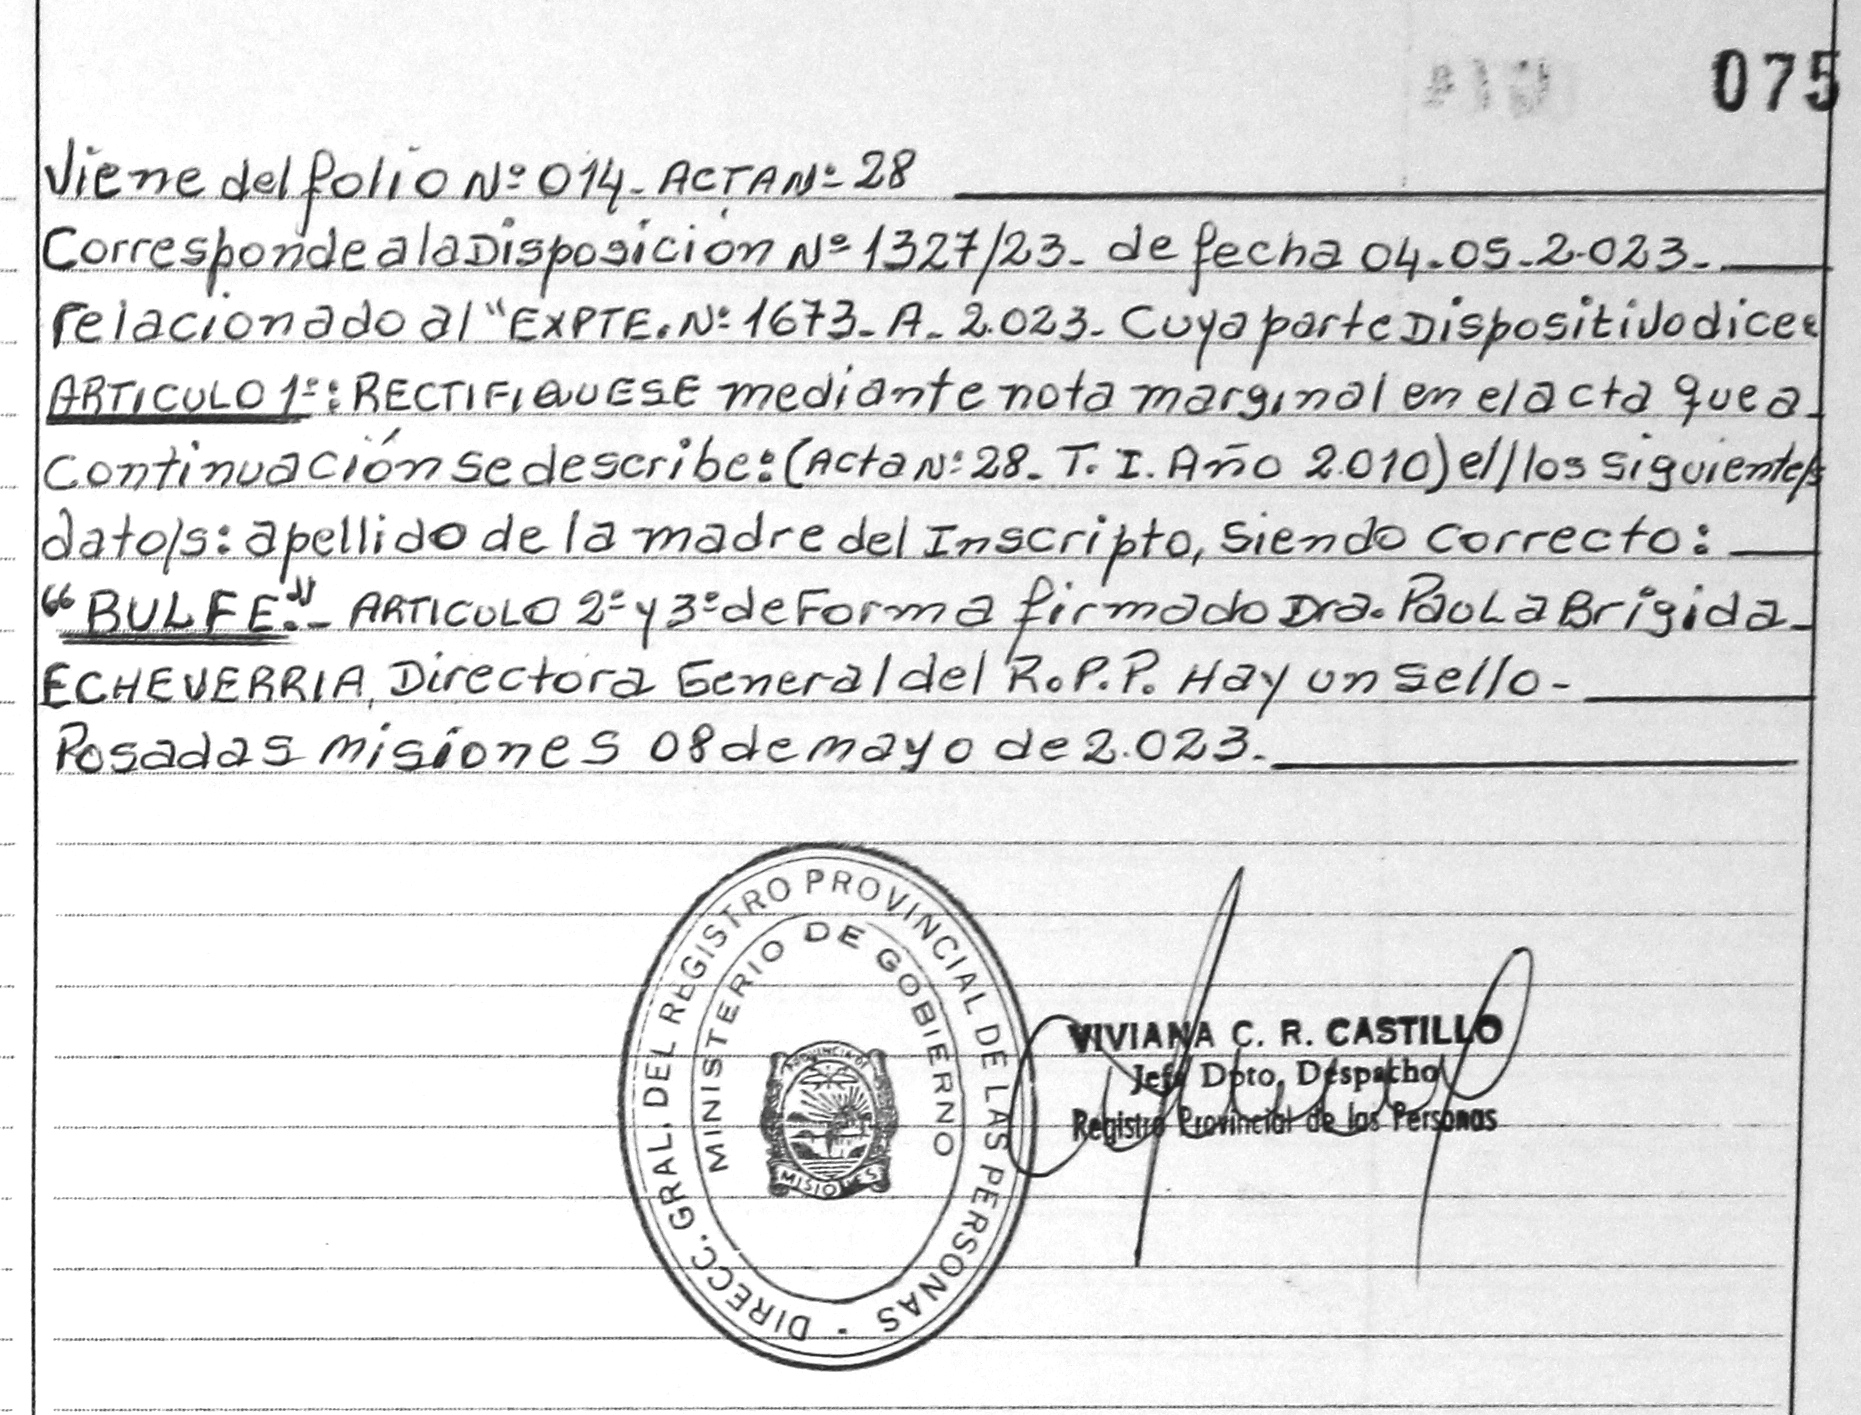 075
Viene del folio Nº 014. ACTA Nº 28
Corresponde a la Disposición Nº 1327/23. de fecha 04.05.2.023.
relacionado al "EXPTE. Nº 1673. A. 2.023. Cuya parte Dispositivo dice:
ARTICULO 1º: RECTIFIQUESE mediante nota marginal en el acta que a
Continuación se describe: (Acta Nº 28. T. I. Año 2.010) el/los siguiente/s
dato/s: apellido de la madre del Inscripto, Siendo Correcto:
"BULFE".- ARTICULO 2º y 3º de Forma firmado Dra. Paola Brígida
ECHEVERRIA, Directora General del R.P.P. Hay un sello-
Posadas Misiones 08 de mayo de 2.023.
DIRECC. GRAL. DEL REGISTRO PROVINCIAL DE LAS PERSONAS
MINISTERIO DE GOBIERNO
PROVINCIA DE
MISIONES
VIVIANA C. R. CASTILLO
Jefe Dpto. Despacho
Registro Provincial de las Personas